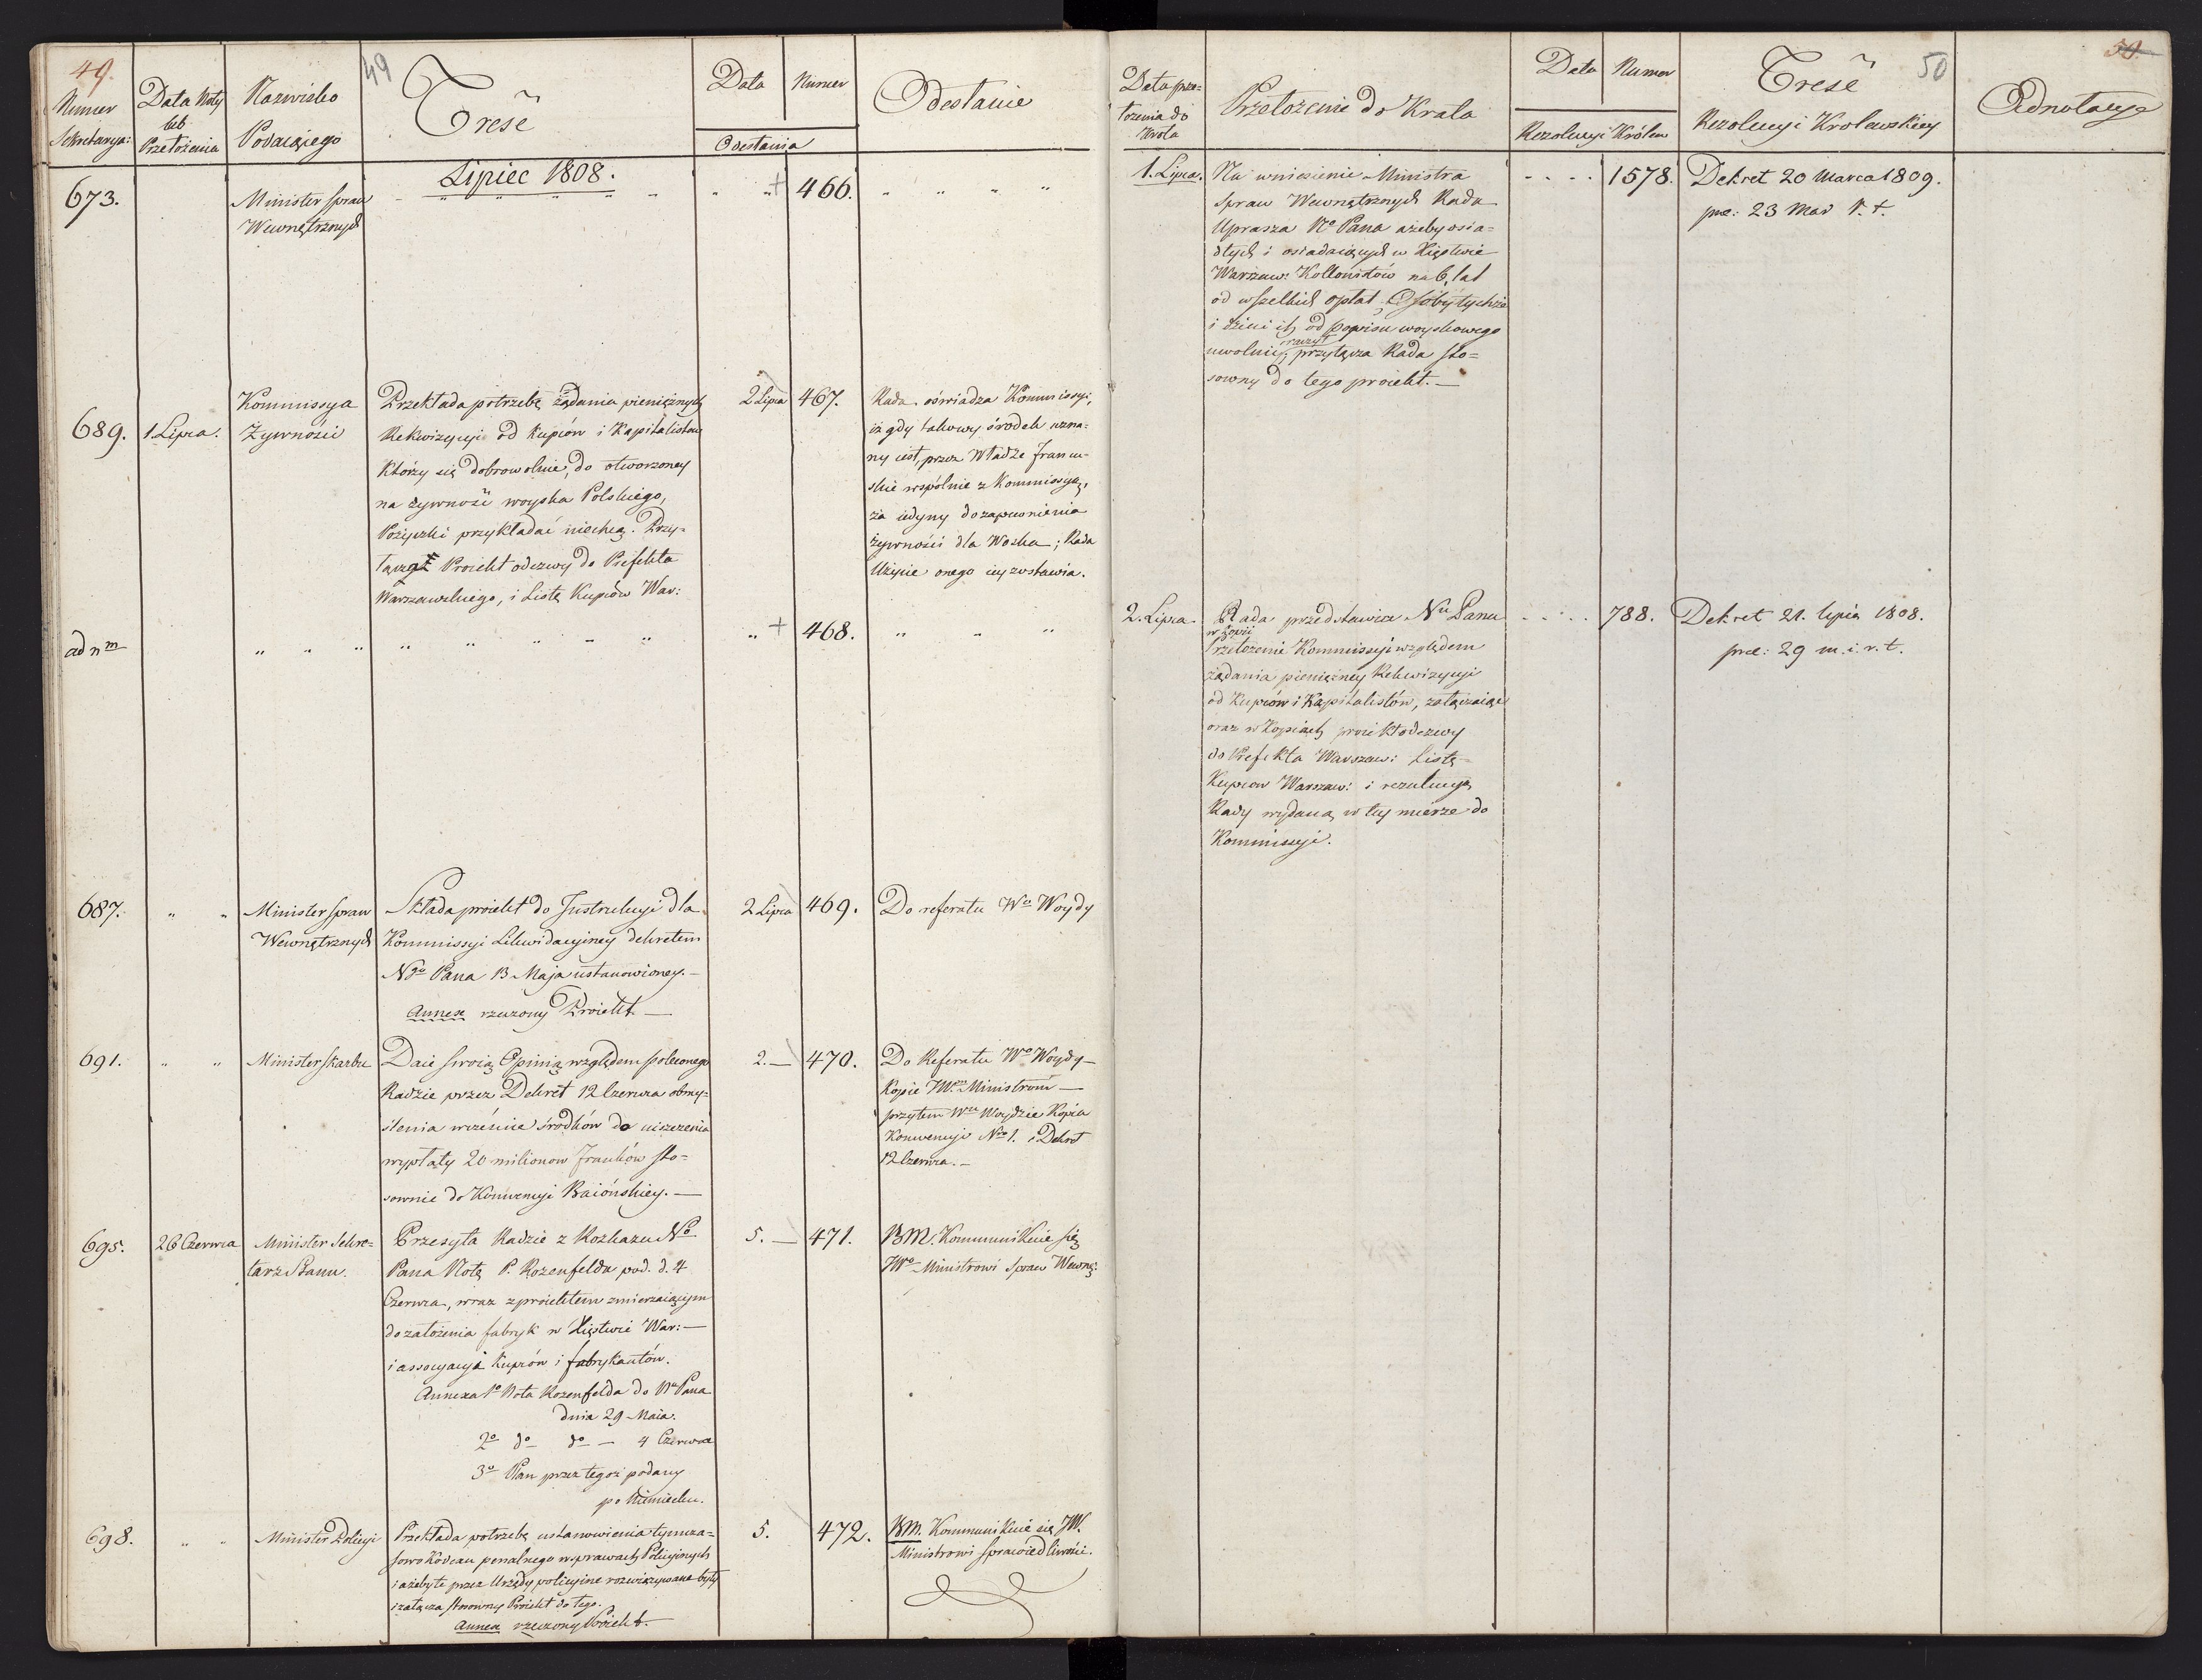 49.
49
Numer
Sekretarya:
Data Noty
lub
Przełożenia
Nazwisko
Podaiącego
Treść
Data
Numer
Odesłania
Odesłanie
Lipiec 1808.
673.
Minister spraw
Wewnętrznych
466.
Kommissya
689.
1. Lipca.
Żywności
Przekłada potrzebę żądania pieniężnych
Rekwizycyi od kupców i Kapitalistów
Którzy się dobrowolnie, do otworzoney
na żywność woyska Polskiego,
Pożyczki przykładać niechcą. Przy-
łącza Proiekt odezwy do Prefekta
Warszawskiego, i Listę Kupców War:
2 Lipca
467.
Rada oświadza Kommissyi,
iż gdy takowy środek uzna-
ny iest, przez Władze francu-
skie wspólnie z Kommissyą,
za iedyny do zapewnienia
żywności dla Woska; Rada
Użycie onego iey zostawia.
ad nm
468.
687.
Minister spraw
Wewnętrznych
Składa proiekt do Instrukcyi dla
Kommissyi Likwidacyiney dekretem
Ngo Pana 13 Maja ustanowioney.
Annex rzeczony Proiekt.
2 Lipca
469.
Do referatu Wo Woydy
691.
Minister skarbu
Daie swoią Opinią względem poleconego
Radzie przez Dekret 12 Czerwca obmy-
ślenia wcześnie środków do uiszczenia
wypłaty 20 milionow franków sto-
sownie do Konwencyi Baiońskiey.
2.
470.
Do Referatu Wo Woydy
Kopie JW. Ministrom
przytem Wmu Woydzie Kopia
Konwencyi Nro 1. i Dekret
12 Czerwca.
695.
26 Czerwca
Minister Sekre-
tarz Stanu.
Przesyła Radzie z Rozkazu No
Pana Notę P. Rozenfelda pod. d. 4
Czerwca, wraz z proiektem zmierzaiącym
do założenia fabryk w Xięstwie War:
i assocyacyi Kupców i fabrykantów.
Annexa 1o Nota Rozenfelda do Nu Pana
dnia 29 Maia.
2o do do 4 Czerwca
3o Plan przez tegoż podany
po Niemiecku.
5.
471.
BM. Kommunikuie się
JWo Ministrowi Spraw Wewnę:
698.
Minister Policyi
Przekłada potrzebę ustanowienia tymcza-
sowo Kodexu penalnego w sprawach Policyinych
i ażeby te przez Urzędy policyine rozwiązywane były
i załącza stosowny Proiekt do tego.
Annex rzeczony Proiekt.
5.
472.
BM. Kommunikuie się JW.
Ministrowi Sprawiedliwości.
50
50.
Data prze-
łożenia do
Krola
Przełożenie do Krola
Data
Numer
Rezolucyi Królew
Treść
Rezolucyi Krolewskiey
Adnotacye
1. Lipca.
Na wniesienie Ministra
Spraw Wewnętrznych Rada
Uprasza No Pana ażeby osia-
dłych i osiadaiących w Xięstwie
Warszaw: Kollonistów na 6 lat
od wszelkich opłat, Osoby tychże
i dzieci ich od popisu woyskowego
raczył
uwolnić; przyłącza Rada sto-
sowny do tego proiekt.
1578.
Dekret 20 Marca 1809.
prae: 23 Mar r. t.
2. Lipca.
Rada przedstawia Nu Panu
w kopii
Przełożenie Kommissyi względem
żądania pieniężney Rekwizycyi
od Kupców i Kapitalistów, załączaiąc
oraz w Kopiach proiekt odezwy
do Prefekta Warszaw: Listę
Kupcow Warszaw: i rezolucyą
Rady wydaną w tey mierze do
Kommissyi.
788.
Dekret 21. lipca 1808.
prae: 29 m. i. r. t.